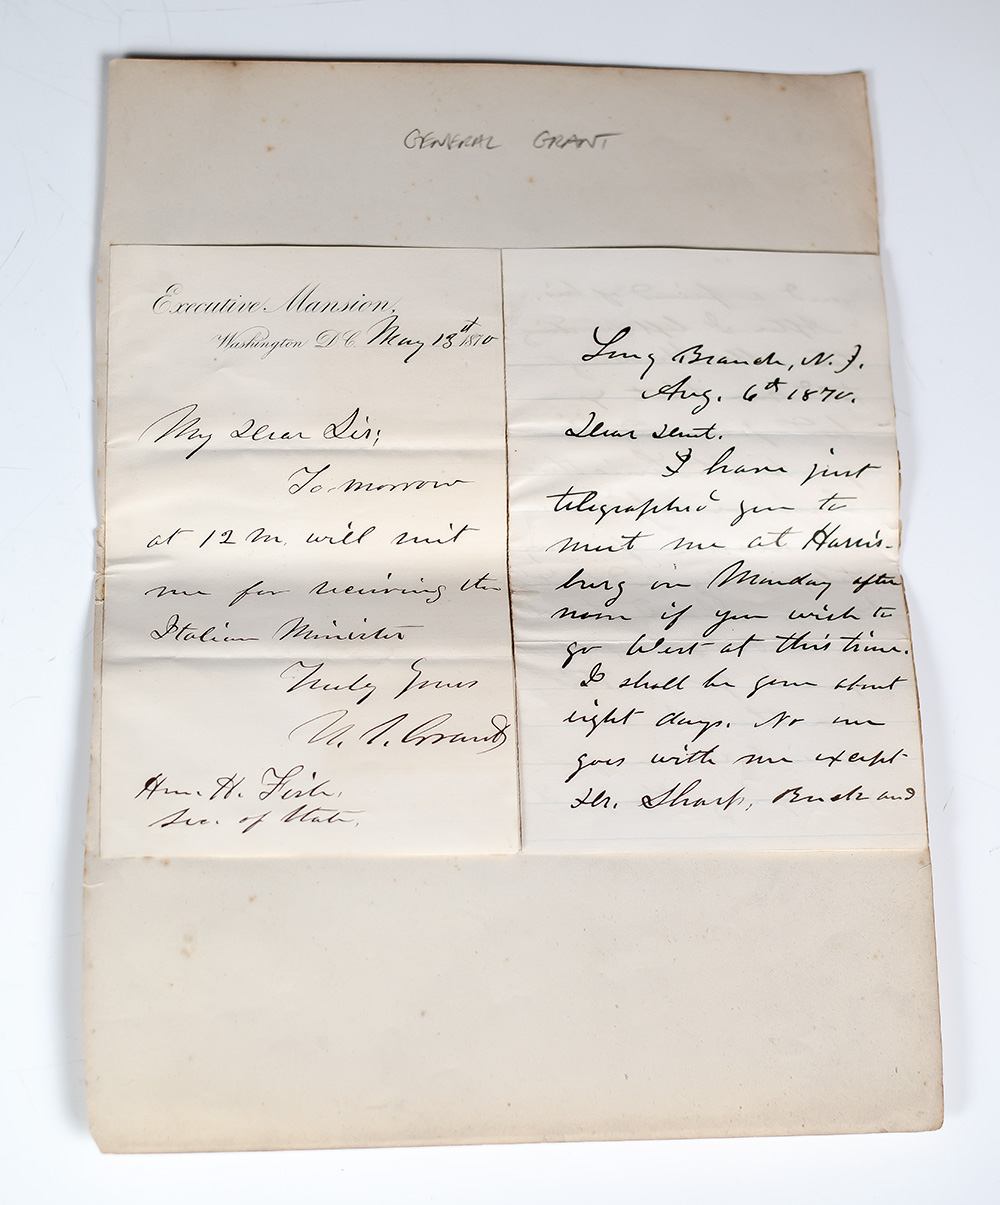 GENERAL GRANT
Executive Mansion,
Washington D.C. May 13th 1870
My Dear Sir;
To-morrow
at 12 m. will suit
me for receiving the
Italian Minister
Truly Yours
U. S. Grant
Hon. H. Fish,
Sec. of State.
Long Branch, N. J.
Aug. 6th 1870.
Dear Dent.
I have just
telegraphed you to
meet me at Harris-
burg on Monday after
noon if you wish to
go West at this time.
I shall be gone about
eight days. No one
goes with me except
Dr. Sharp, Buck and